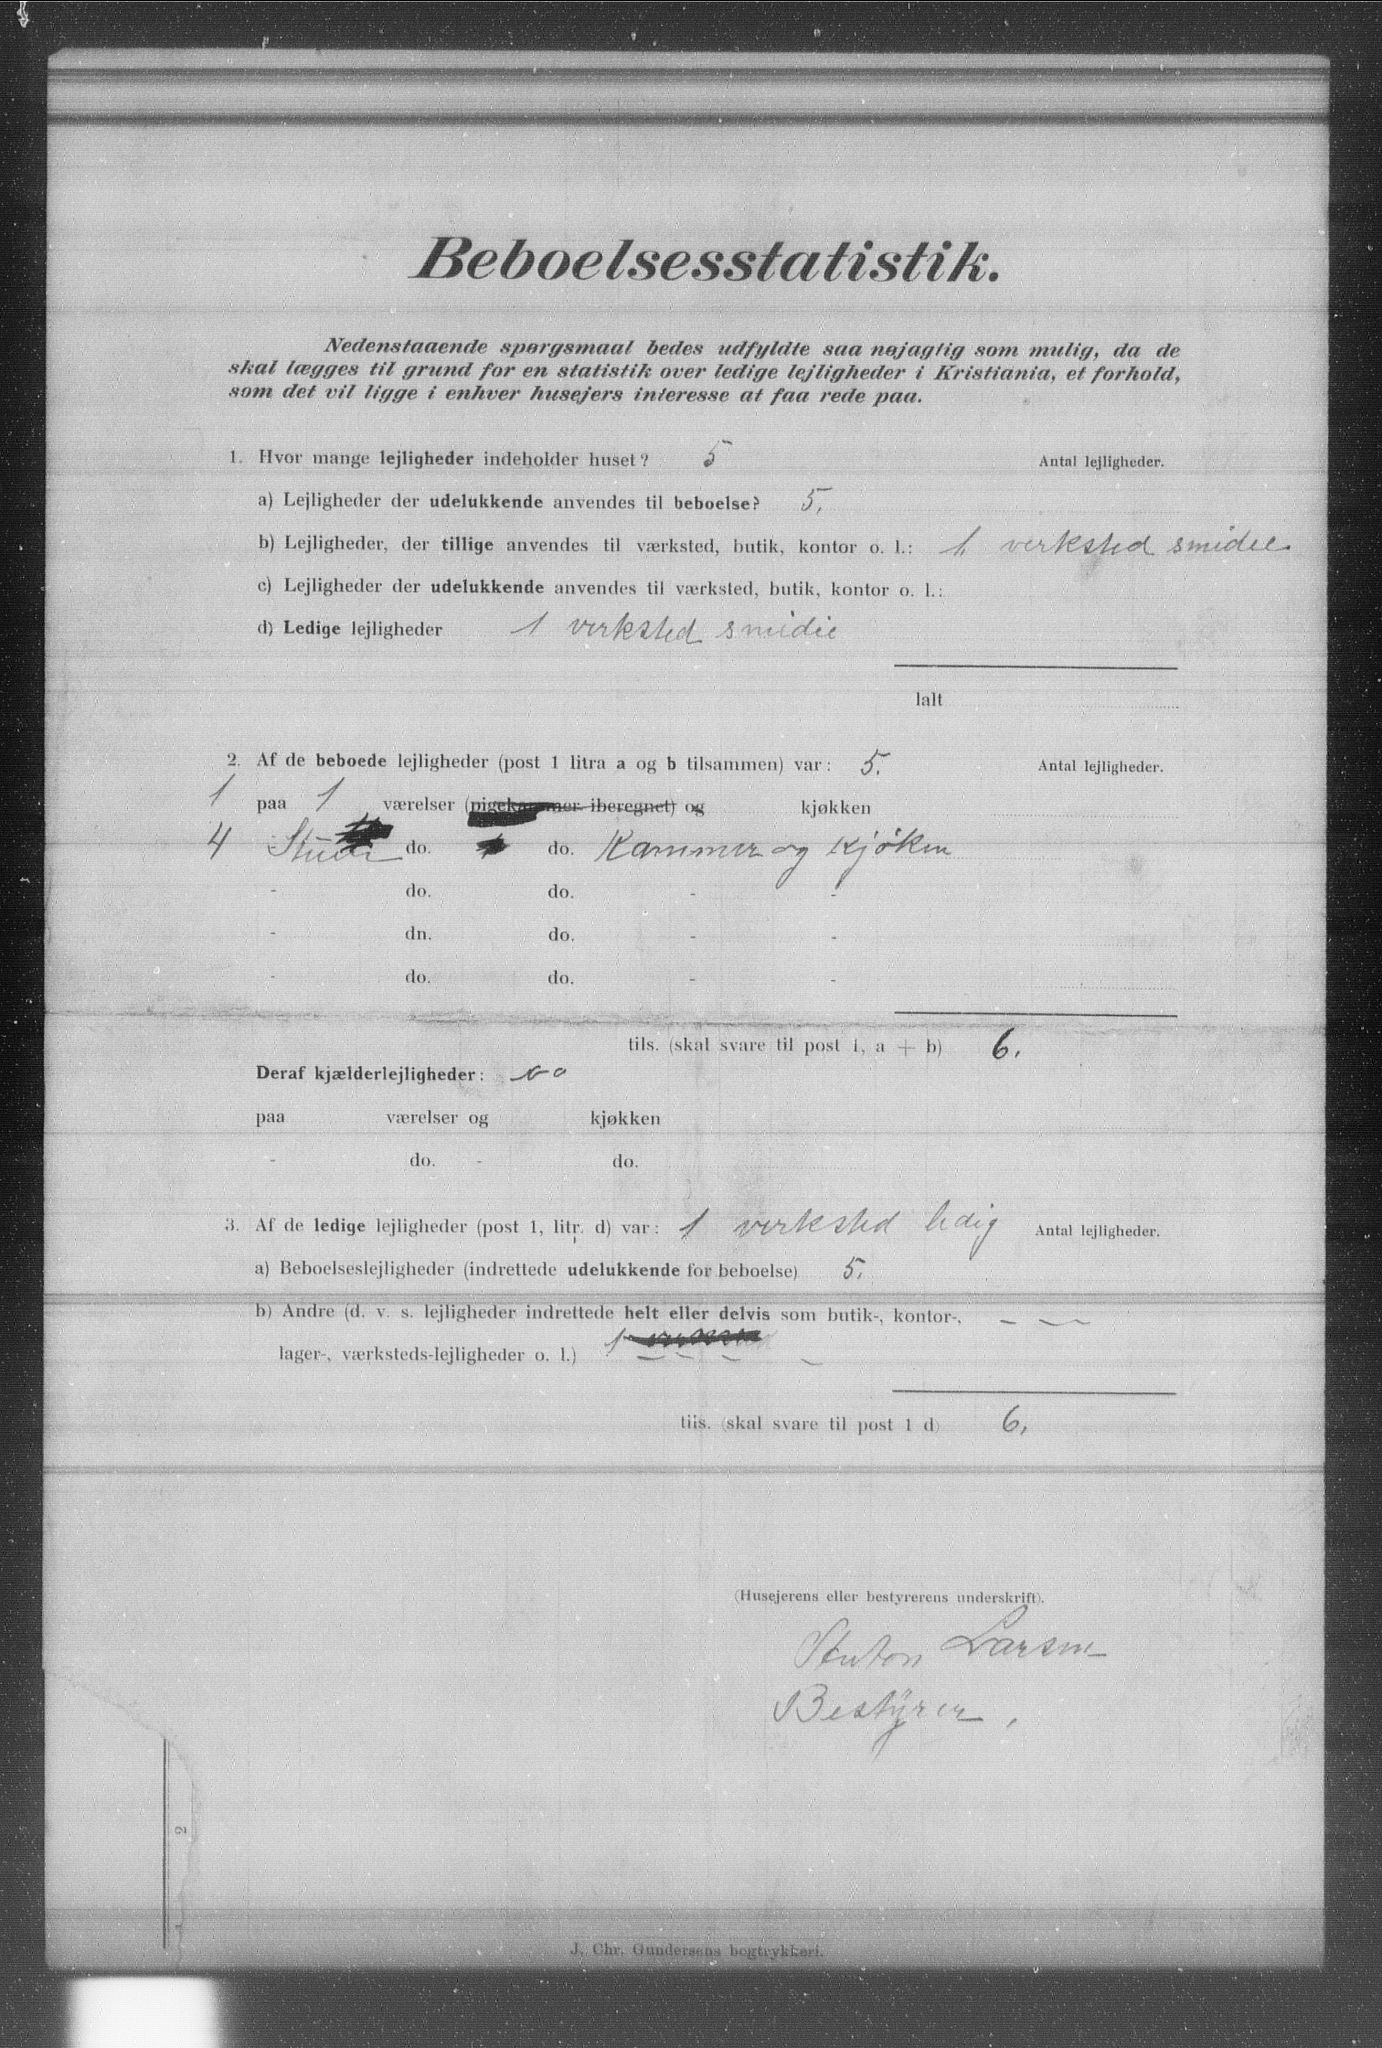 Beboelsesstatistik.
Nedenstaaende spørgsmaal bedes udfyldte saa nøjagtig som mulig, da de
skal lægges til grund for en statistik over ledige lejligheder i Kristiania, et forhold,
som det vil ligge i enhver husejers interesse at faa rede paa.
1. Hvor mange lejligheder indeholder huset? 5 Antal lejligheder.
a) Lejligheder der udelukkende anvendes til beboelse? 5.
b) Lejligheder, der tillige anvendes til værksted, butik, kontor o. l.: 1 verksted smidie
c) Lejligheder der udelukkende anvendes til værksted, butik, kontor o. l.:
d) Ledige lejligheder 1 verksted smidie
Ialt
2. Af de beboede lejligheder (post 1 litra a og b tilsammen) var: 5. Antal lejligheder.
1 paa 1 værelser (pigekammer iberegnet) og kjøkken
4 do. do. Kammer og Kjøken
- do. do. - -
- dn. do. - -
- do. do. - -
tils. (skal svare til post i, a + b) 6.
Deraf kjælderlejligheder:
paa værelser og kjøkken
- do. - do.
3. Af de ledige lejligheder (post 1, litr. d) var: 1 verksted ledig Antal lejligheder.
a) Beboelseslejligheder (indrettede udelukkende for beboelse) 5.
b) Andre (d. v. s. lejligheder indrettede helt eller delvis som butik-, kontor-, - -
lager-, værksteds-lejligheder o. l.) 1 - - - -
tiis. (skal svare til post 1 d) 6.
(Husejerens eller bestyrerens underskrift).
Anton Larsen
Bestyrer.
2
J. Chr. Gundersens bogtrykkeri.